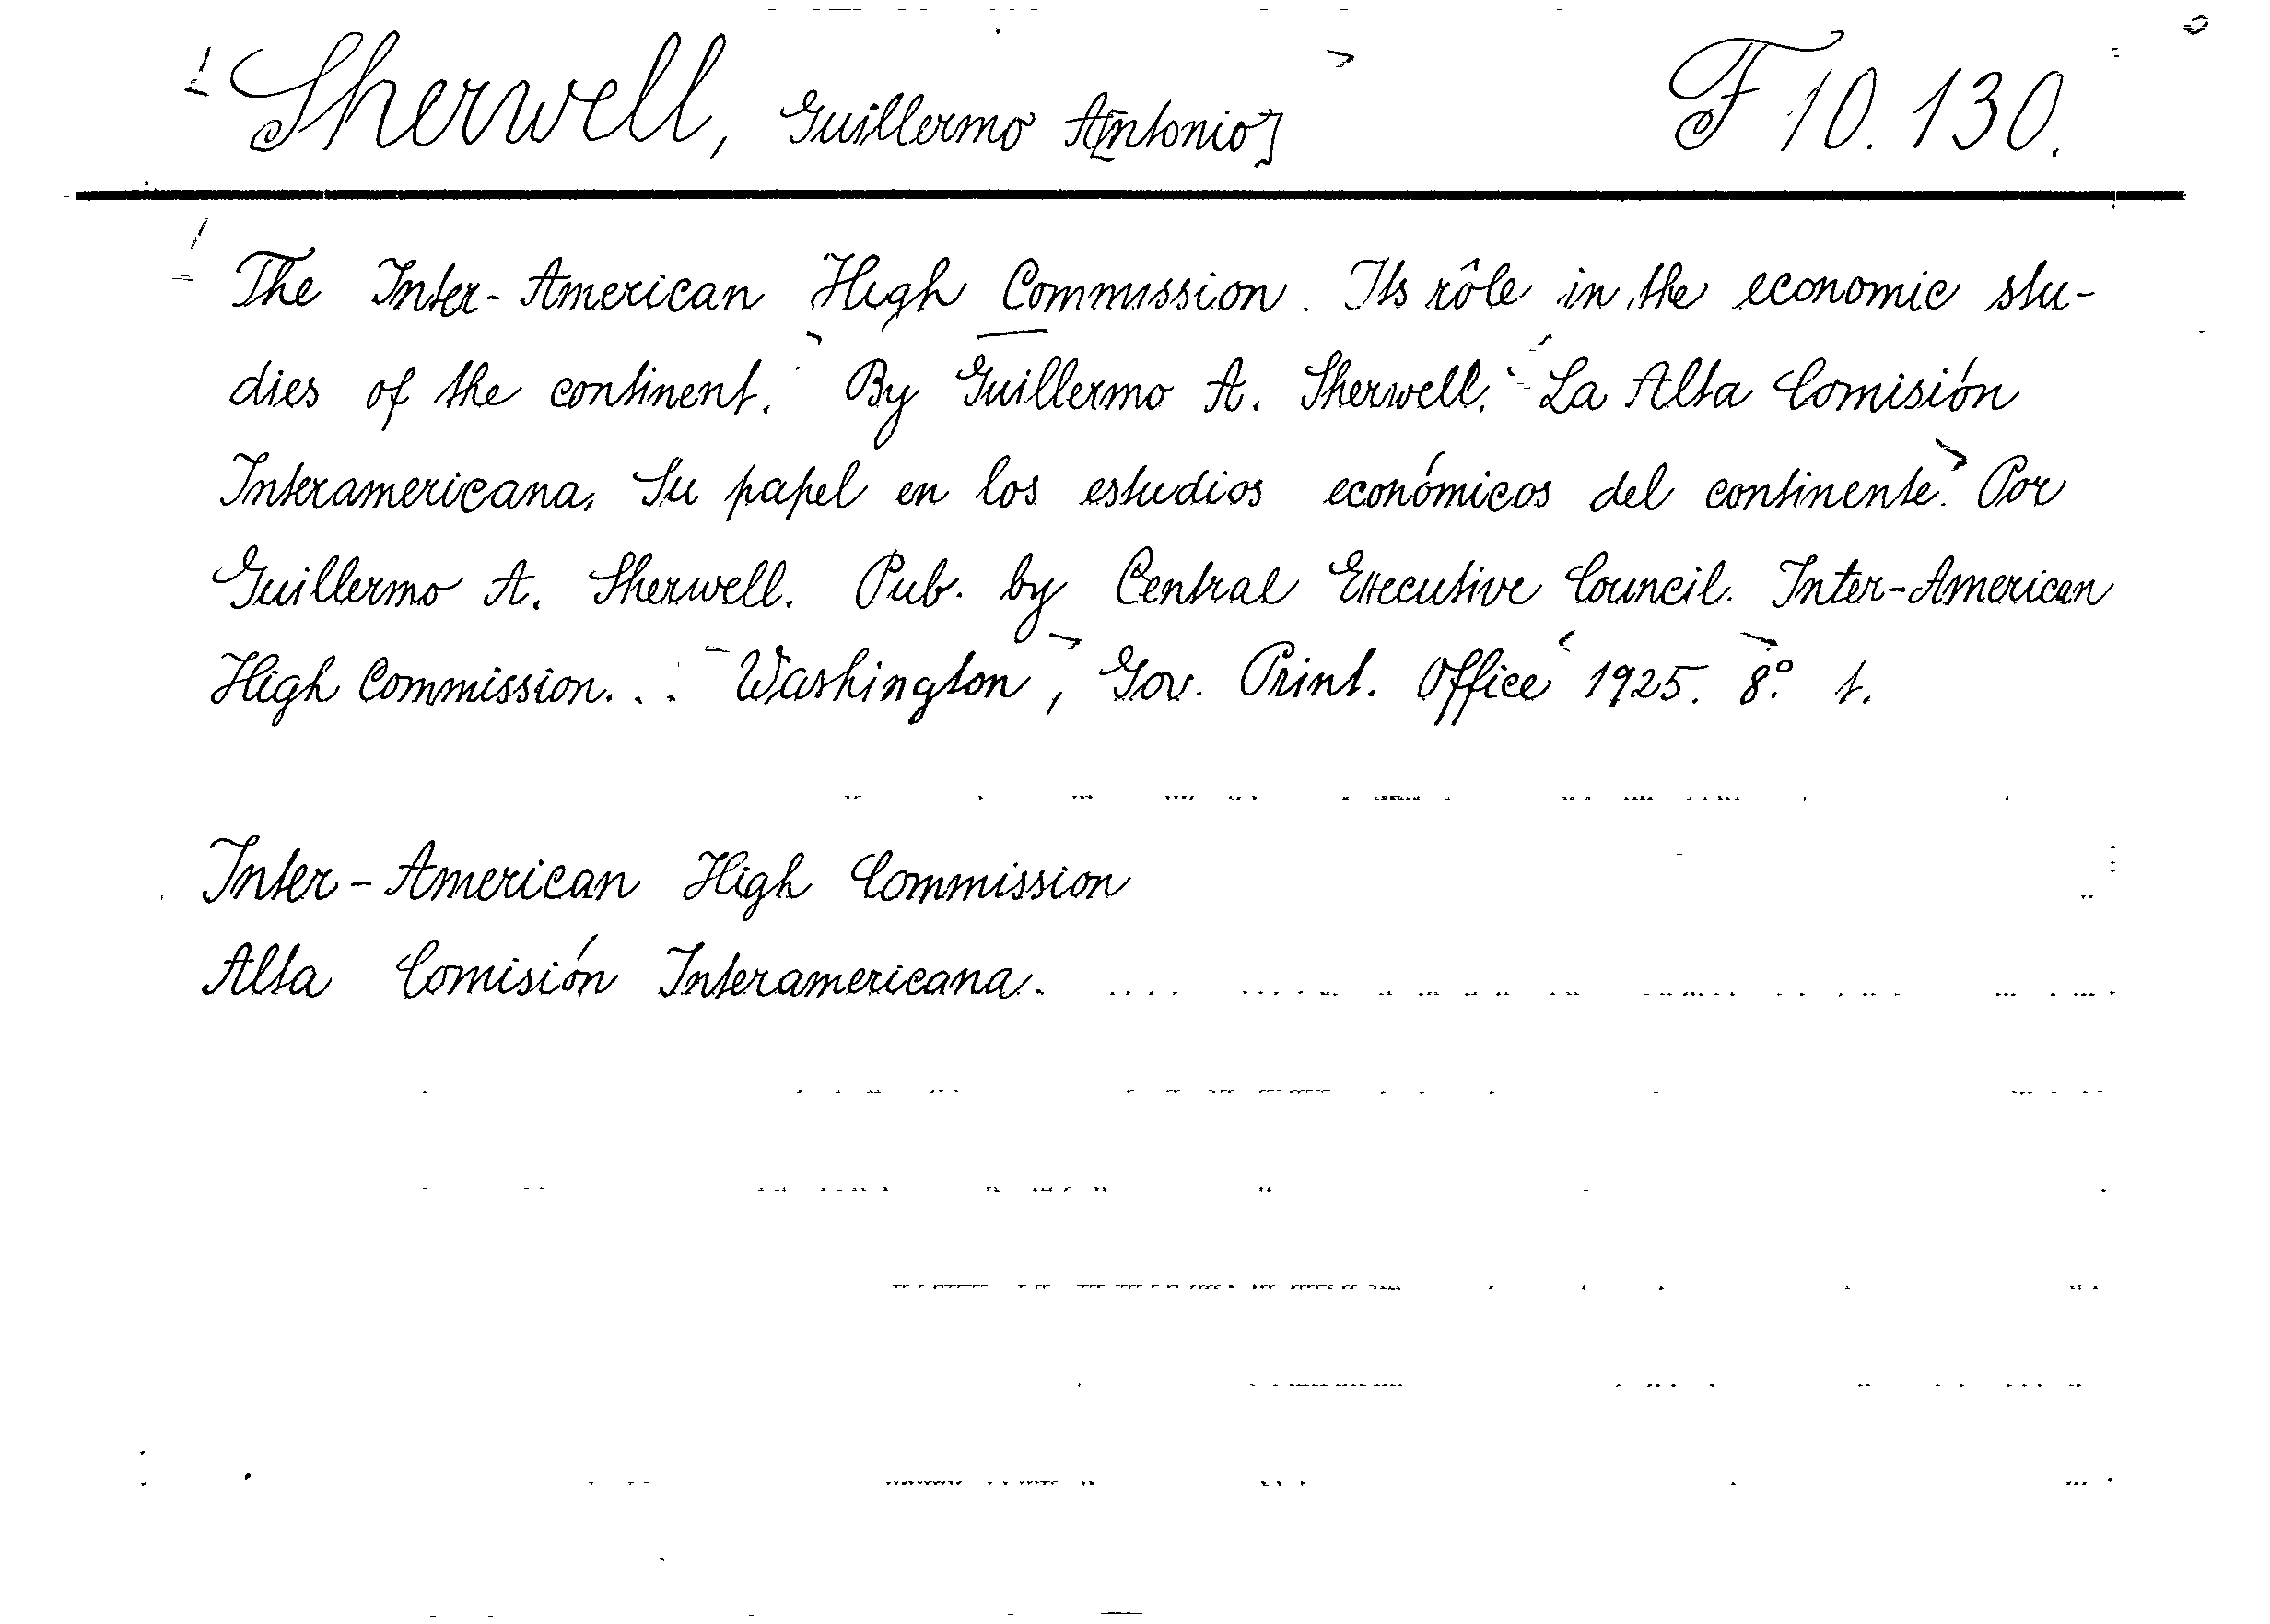 Sherwell, Guillermo A[ntonio] F 10.130.
The Inter-American High Commission. Its rôle in the economic stu-
dies of the continent. By Guillermo A. Sherwell. La Alta Comisión
Interamericana. Su papel en los estudios económicos del continente. Por
Guillermo A. Sherwell. Pub. by Central Executive Council. Inter-American
High Commission... Washington, Gov. Print. Office 1925. 8.º t.
Inter-American High Commission
Alta Comisión Interamericana.